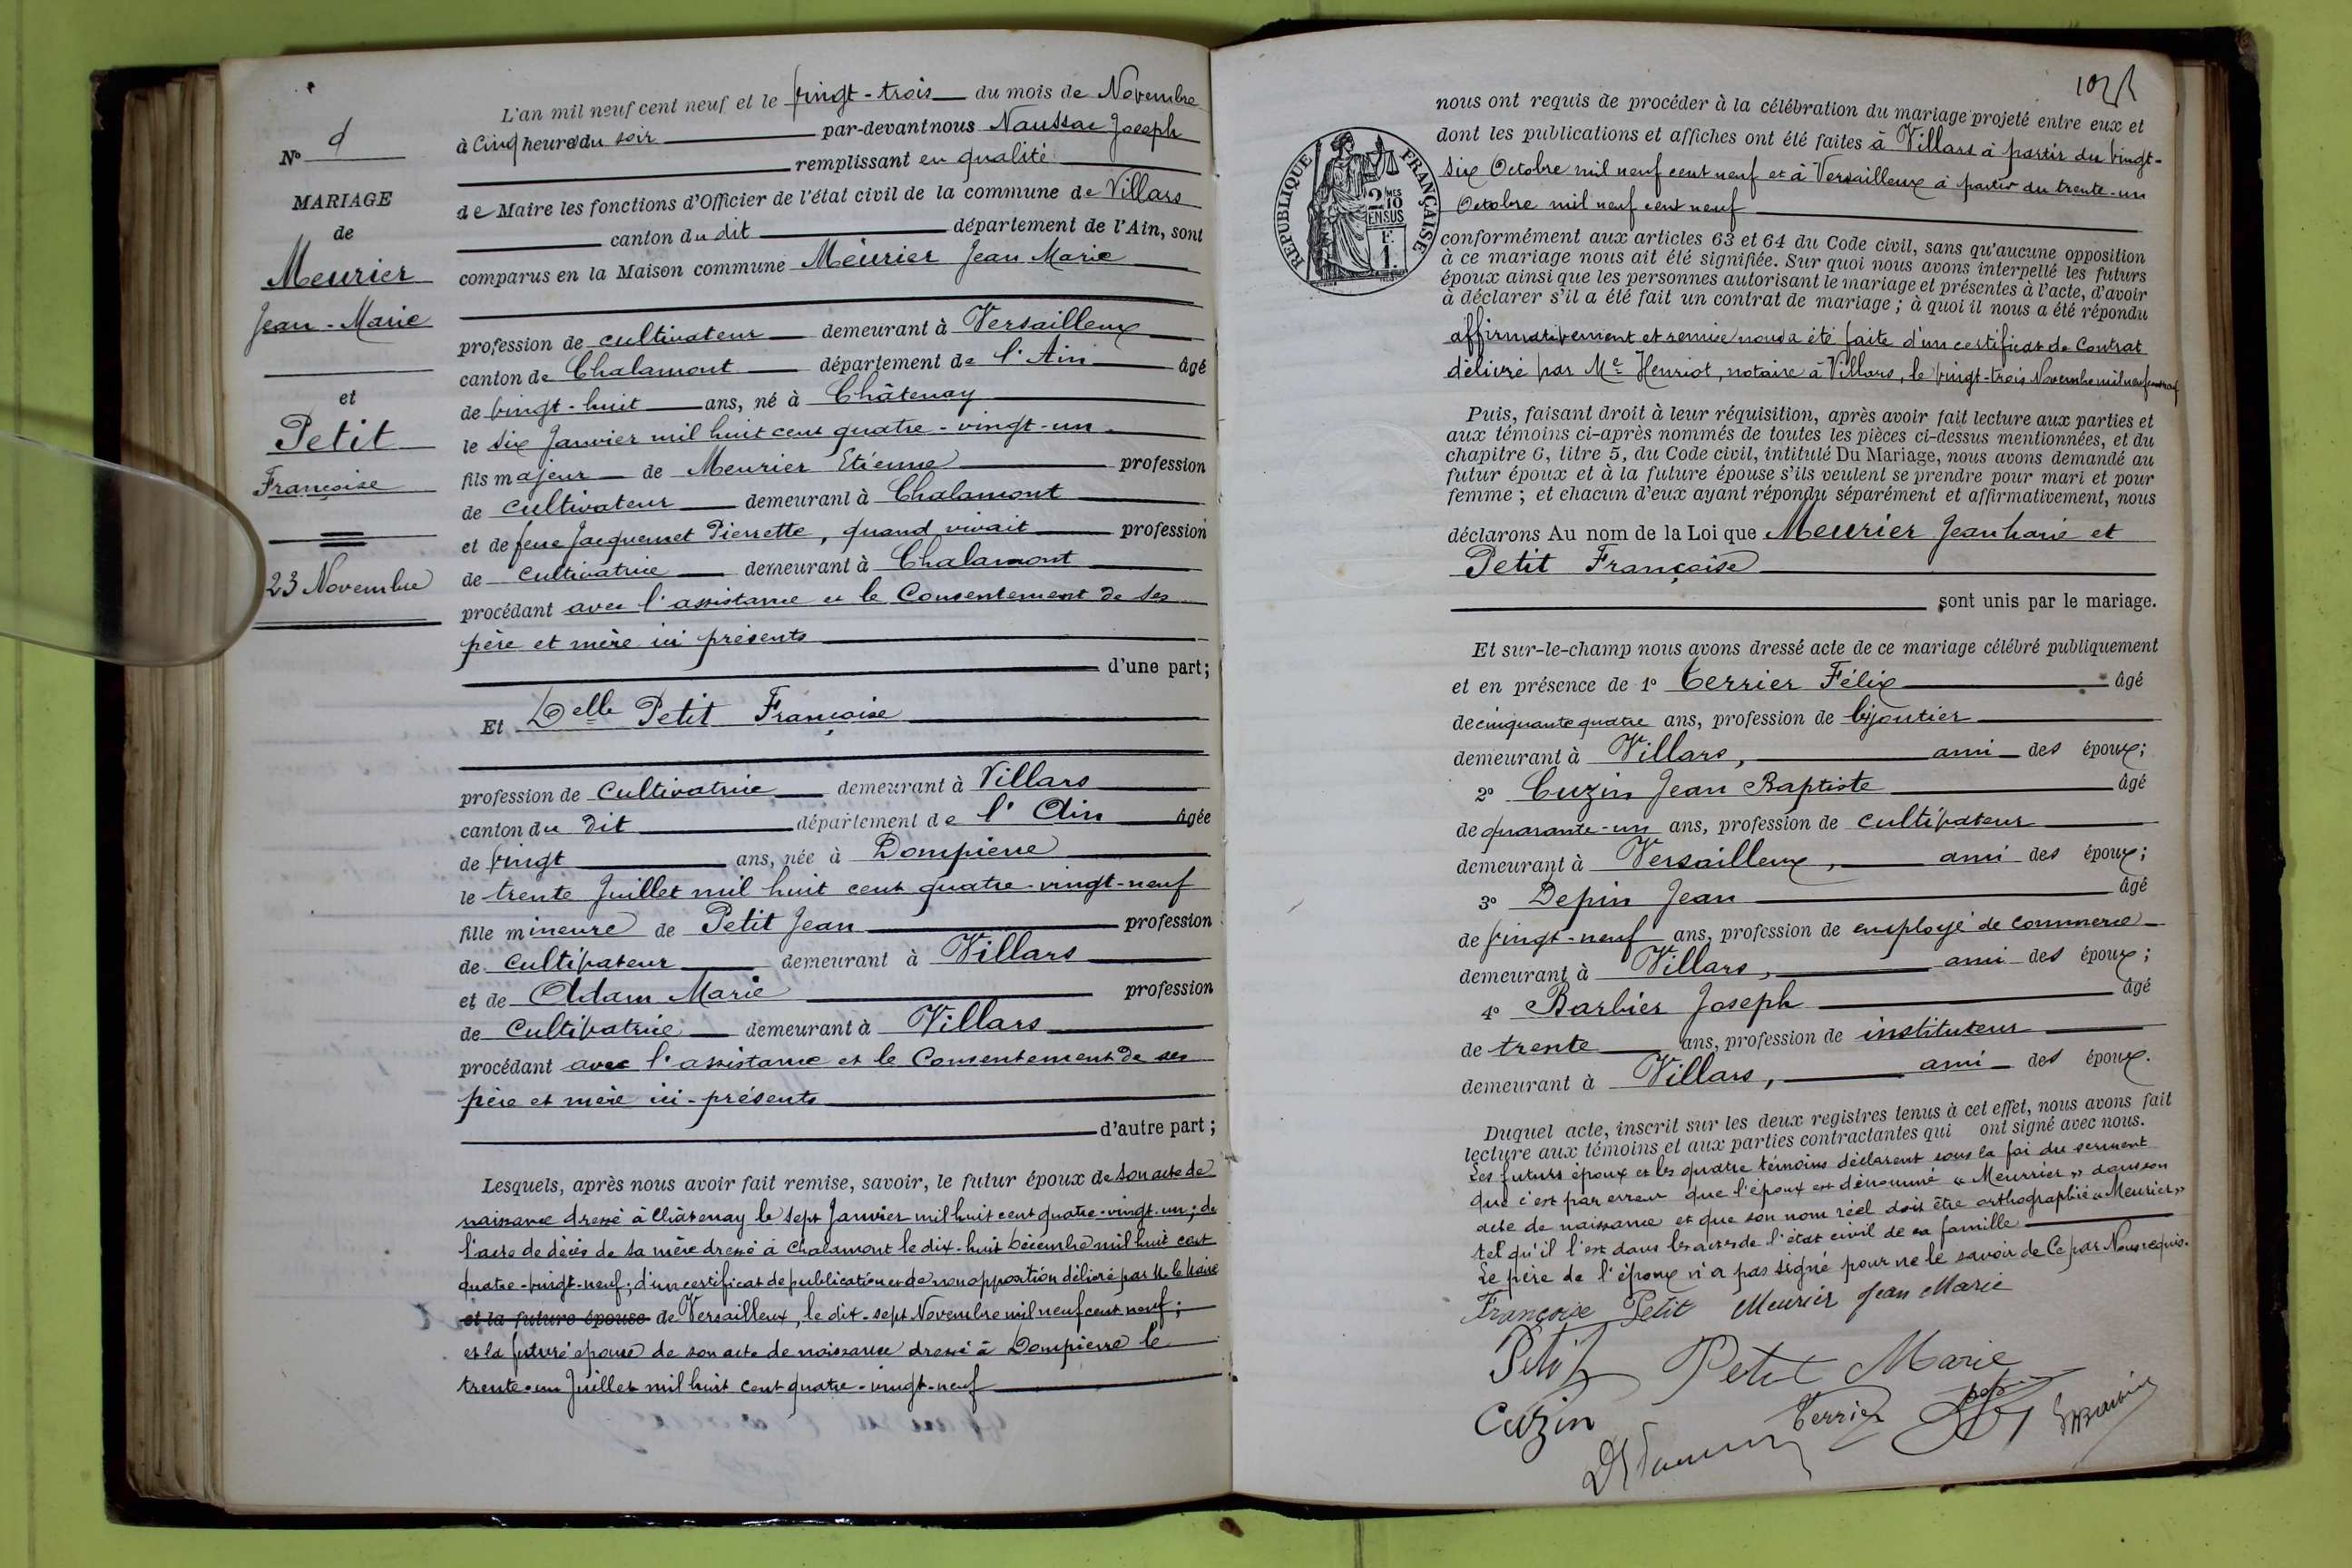 L'an mil neuf cent neuf et le vingt-trois du mois de Novembre
à Cinq heures du soir par-devant nous Naussac Joseph
remplissant en qualité
de Maire les fonctions d'Officier de l'état civil de la commune de Villars
canton du dit département de l'Ain, sont
comparus en la Maison commune Meurier Jean Marie
profession de cultivateur demeurant à Versailleux
canton de Chalamont département de l'Ain âgé
de vingt-huit ans, né à Châtenay
le six Janvier mil huit cent quatre-vingt-un
fils majeur de Meurier Etienne profession
de cultivateur demeurant à Chalamont
et de feue Jacquemet Pierrette, quand vivait profession
de cultivatrice demeurant à Chalamont
procédant avec l'assistance et le Consentement de ses
père et mère ici présents
d'une part;
Et Delle Petit Françoise
profession de cultivatrice demeurant à Villars
canton du dit département de l'Ain âgée
de vingt ans, née à Dompierre
le trente Juillet mil huit cent quatre-vingt-neuf
fille mineure de Petit Jean profession
de cultivateur demeurant à Villars
et de Adam Marie profession
de Cultivatrice demeurant à Villars
procédant avec l'assistance et le Consentement de ses
père et mère ici-présents
d'autre part;
Lesquels, après nous avoir fait remise, savoir, le futur époux de son acte de
naissance dressé à Châtenay le sept Janvier mil huit cent quatre-vingt-un; de
l'acte de décès de sa mère dressé à Chalamont le dix-huit Décembre mil huit cent
quatre-vingt-neuf; d'un certificat de publication et de non opposition délivré par M. le Maire
et la future épouse de Versailleux, le dix-sept Novembre mil neuf cent neuf;
et la future épouse de son acte de naissance dressé à Dompierre le
trente-un Juillet mil huit cent quatre-vingt-neuf
No 9
MARIAGE
de
Meurier
Jean-Marie
et
Petit
Françoise
23 Novembre
nous ont requis de procéder à la célébration du mariage projeté entre eux et
dont les publications et affiches ont été faites à Villars à partir du vingt-
six Octobre mil neuf cent neuf et à Versailleux à partir du trente-un
Octobre mil neuf cent neuf
REPUBLIQUE FRANÇAISE
2 MES
10
EN SUS
F.
1.
conformément aux articles 63 et 64 du Code civil, sans qu'aucune opposition
à ce mariage nous ait été signifiée. Sur quoi nous avons interpellé les futurs
époux ainsi que les personnes autorisant le mariage et présentes à l'acte, d'avoir
à déclarer s'il a été fait un contrat de mariage; à quoi il nous a été répondu
affirmativement et remise nous a été faite d'un certificat de Contrat
délivré par Me Henriot, notaire à Villars, le vingt-trois Novembre mil neuf cent neuf
Puis, faisant droit à leur réquisition, après avoir fait lecture aux parties et
aux témoins ci-après nommés de toutes les pièces ci-dessus mentionnées, et du
chapitre 6, titre 5, du Code civil, intitulé Du Mariage, nous avons demandé au
futur époux et à la future épouse s'ils veulent se prendre pour mari et pour
femme; et chacun d'eux ayant répondu séparément et affirmativement, nous
déclarons Au nom de la Loi que Meurier Jean Marie et
Petit Françoise
sont unis par le mariage.
Et sur-le-champ nous avons dressé acte de ce mariage célébré publiquement
et en présence de 1o Terrier Félix âgé
de cinquante quatre ans, profession de bijoutier
demeurant à Villars, ami des époux;
2o Cuzin Jean Baptiste âgé
de quarante-un ans, profession de cultivateur
demeurant à Versailleux, ami des époux;
3o Depin Jean âgé
de vingt-neuf ans, profession de employé de commerce
demeurant à Villars, ami des époux;
4o Barbier Joseph âgé
de trente ans, profession de instituteur
demeurant à Villars, ami des époux.
Duquel acte, inscrit sur les deux registres tenus à cet effet, nous avons fait
lecture aux témoins et aux parties contractantes qui ont signé avec nous.
Les futurs époux et les quatre témoins déclarent sous la foi du serment
que c'est par erreur que l'époux est dénommé « Meurrier » dans son
acte de naissance et que son nom réel doit être orthographié « Meurier »
tel qu'il l'est dans les actes de l'état civil de sa famille
Le père de l'époux n'a pas signé pour ne le savoir de Ce par Nous requis.
Françoise Petit Meurier Jean Marie
Petit Petit Marie
Cuzin Terrier